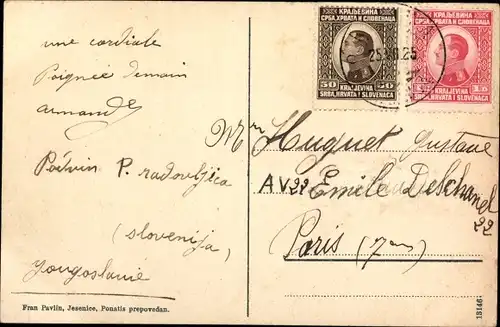 une cordiale
Poignée demain
armande
Podvin P. radovljica
(slovenija)
Yougoslavie
Fran Pavlin, Jesenice, Ponatis prepovedan.
КРАЉЕВИНА
СРБА, ХРВАТА И СЛОВЕНАЦА
50 50
KRALJEVINA
SRBA, HRVATA I SLOVENACA
КРАЉЕВИНА
СРБА, ХРВАТА И СЛОВЕНАЦА
KRALJEVINA
SRBA, HRVATA I SLOVENACA
Huguet Gustave
AV 22 Emile Deschanel
22
Paris (7em)
18146